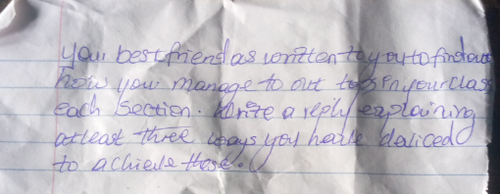 your best friend as written to you to find out
how you manage to out tops in your class
each section. Write a reply explaining
atleast three ways you have deviced
to achieve these.